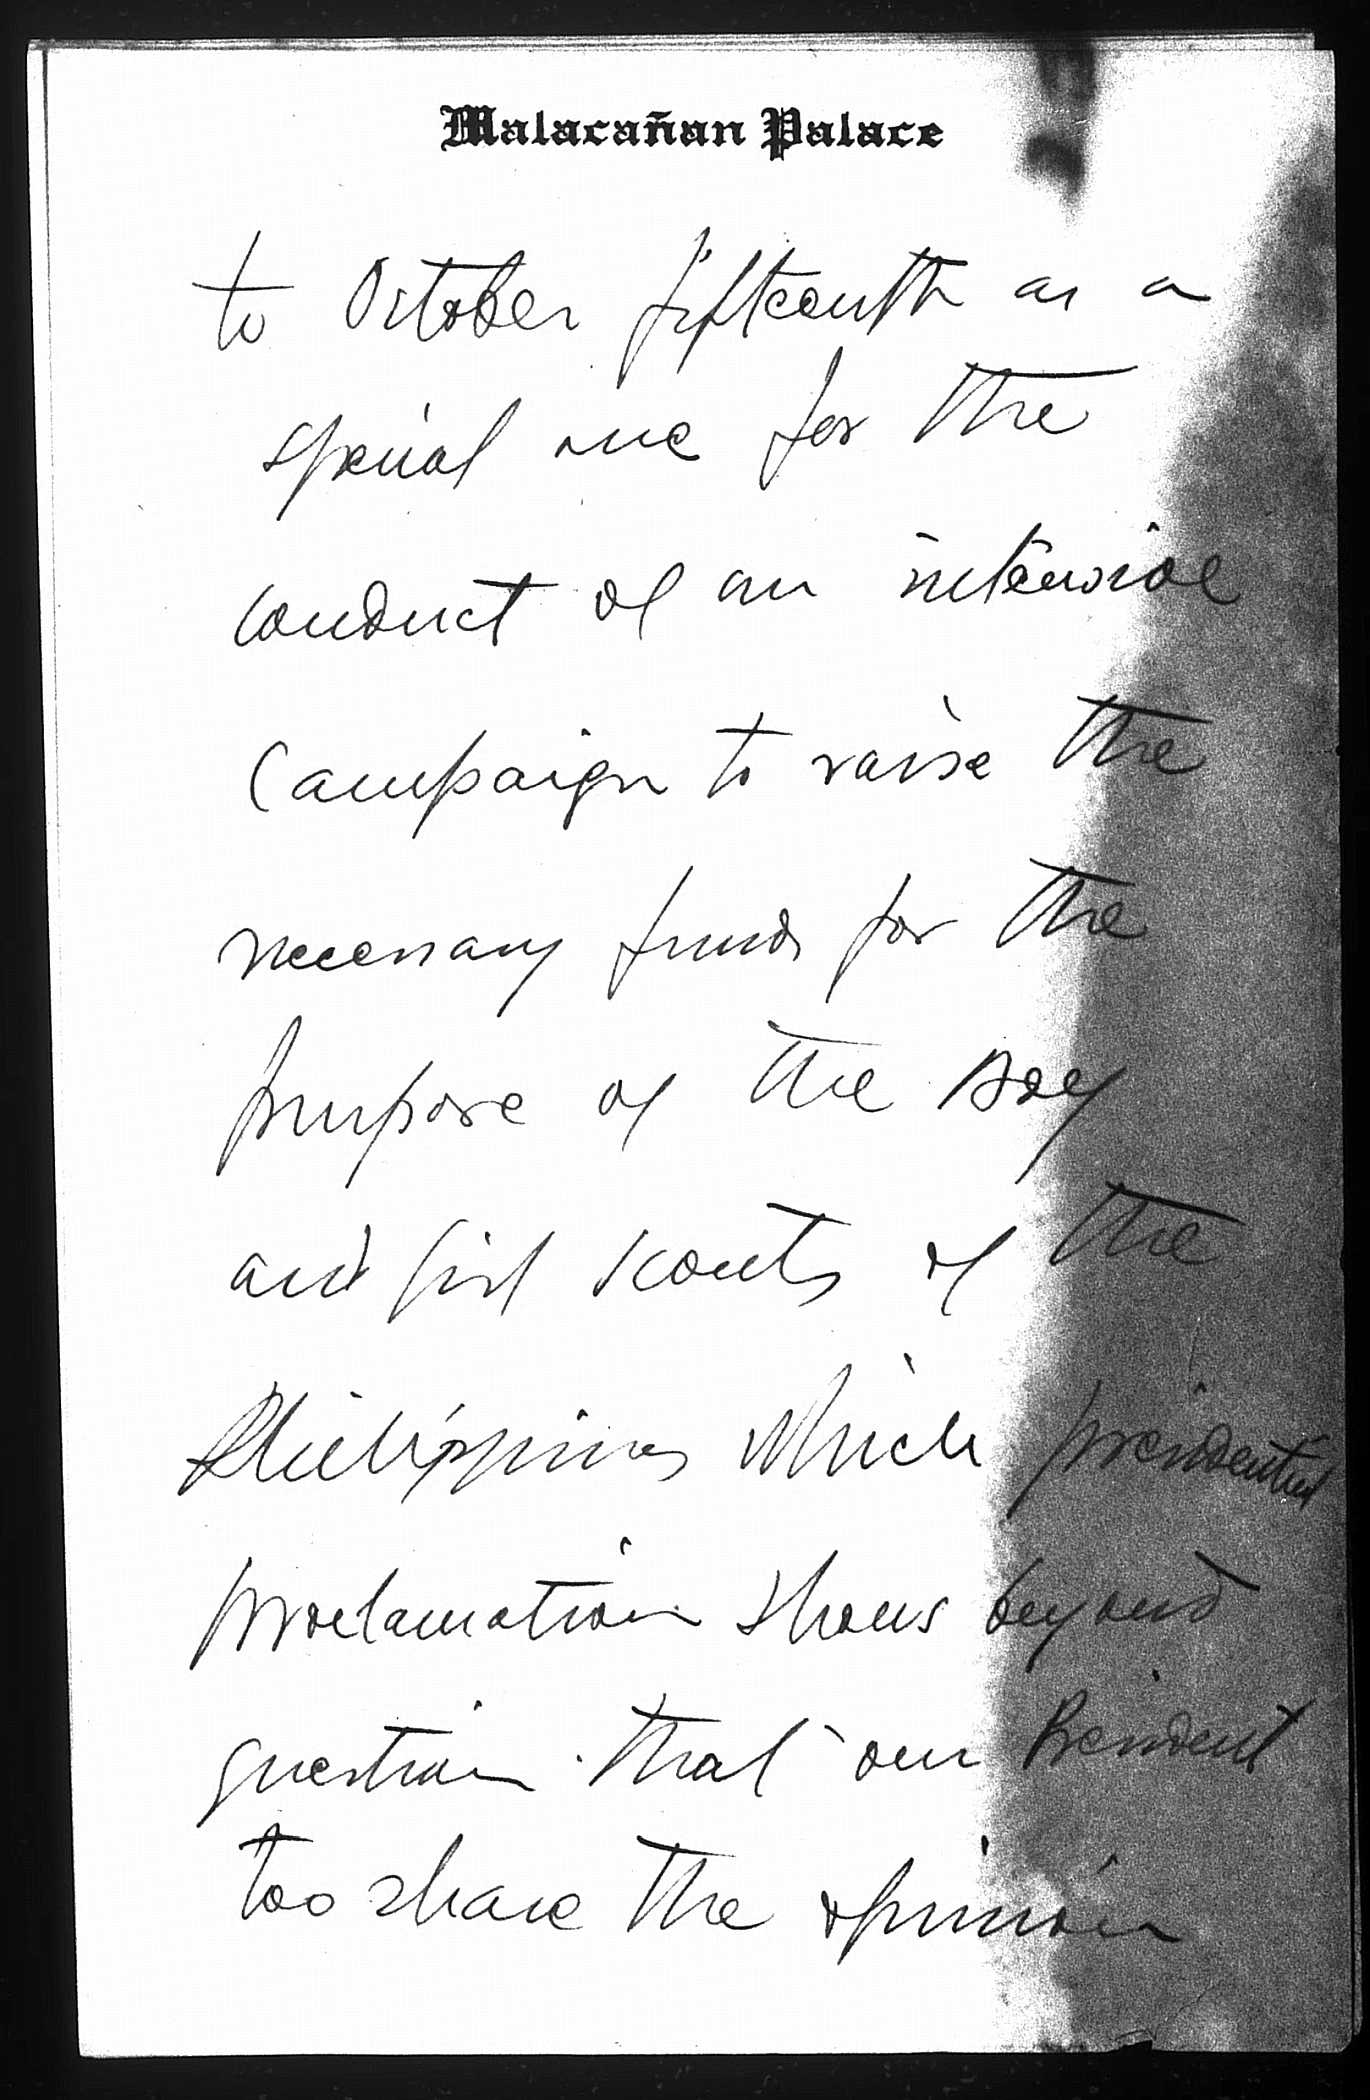 Malacañan Palace
to October fifteenth as a
special one for the
conduct of an intensive
campaign to raise the
necessary funds for the
purpose of the Boy
and Girl Scouts of the
Philippines which presidential
proclamation shows beyond
question that our President
too share the opinion